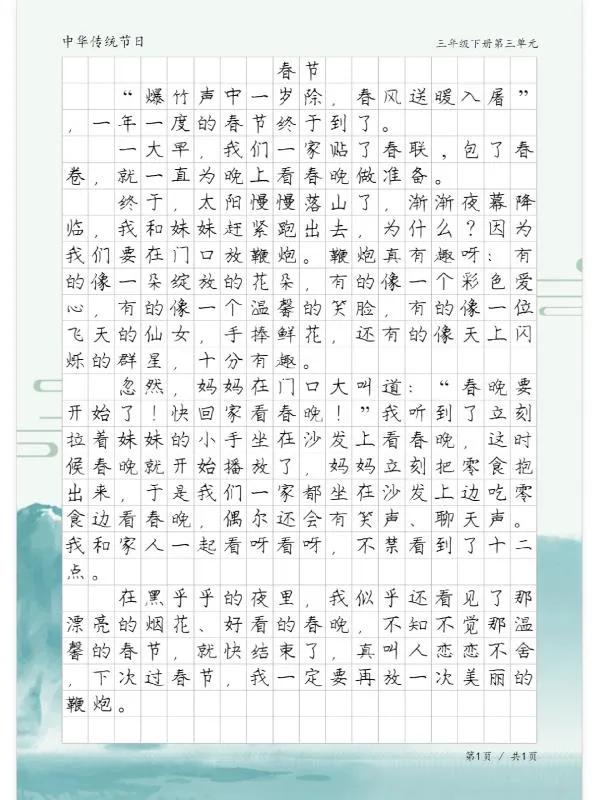 中华传统节日
三年级下册第三单元
春节
“爆竹声中一岁除，春风送暖入屠”
，一年一度的春节终于到了。
一大早，我们一家贴了春联，包了春
卷，就一直为晚上看春晚做准备。
终于，太阳慢慢落山了，渐渐夜幕降
临，我和妹妹赶紧跑出去，为什么？因为
我们要在门口放鞭炮。鞭炮真有趣呀：有
的像一朵绽放的花朵，有的像一个彩色爱
心，有的像一个温馨的笑脸，有的像一位
飞天的仙女，手捧鲜花，还有的像天上闪
烁的群星，十分有趣。
忽然，妈妈在门口大叫道：“春晚要
开始了！快回家看春晚！”我听到了立刻
拉着妹妹的小手坐在沙发上看春晚，这时
候春晚就开始播放了，妈妈立刻把零食抱
出来，于是我们一家都坐在沙发上边吃零
食边看春晚，偶尔还会有笑声、聊天声。
我和家人一起看呀看呀，不禁看到了十二
点。
在黑乎乎的夜里，我似乎还看见了那
漂亮的烟花、好看的春晚，不知不觉那温
馨的春节，就快结束了，真叫人恋恋不舍
，下次过春节，我一定要再放一次美丽的
鞭炮。
第1页 / 共1页